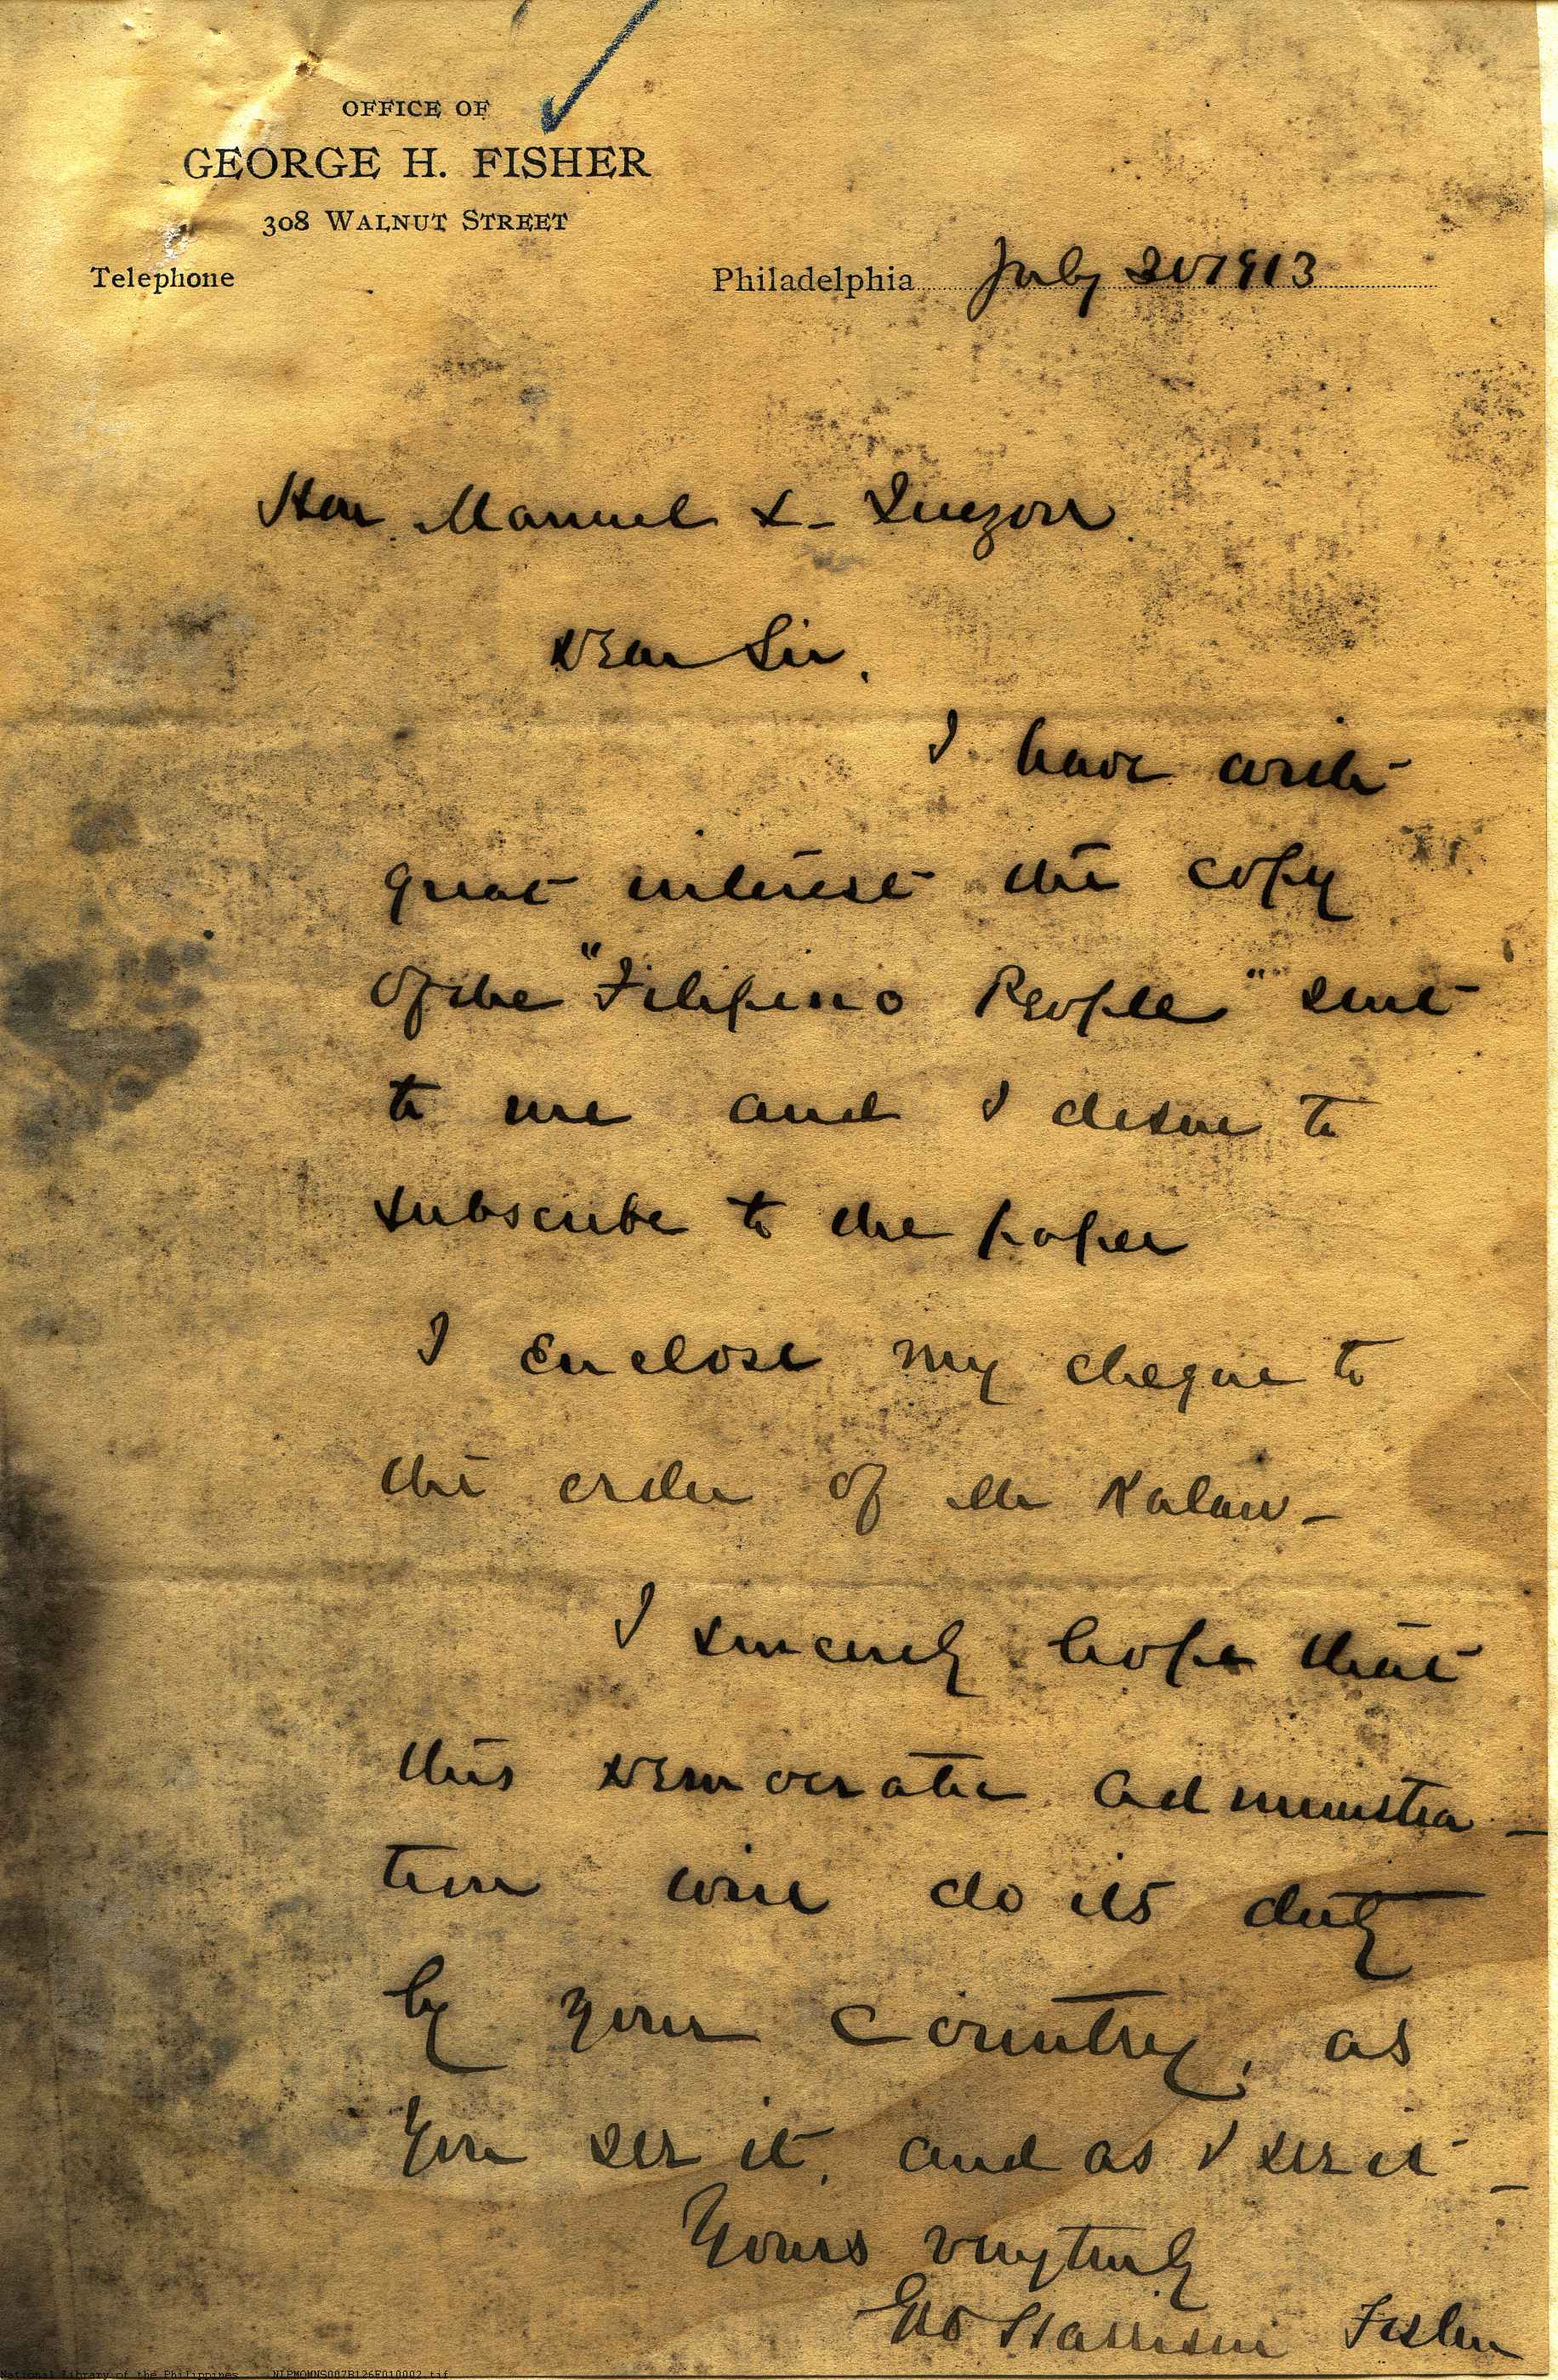 OFFICE OF
GEORGE H. FISHER
308 WALNUT STREET
Telephone
Philadelphia July 20 1913
Hon. Manuel L. Quezon.
Dear Sir,
I have with
great interest the copy
of the "Filipino People" sent
to me and I desire to
subscribe to the paper
I enclose my cheque to
the order of Mr Kalaw-
I sincerely hope that
this Democratic administra-
tion will do its duty
by your country, as
you see it, and as I see it-
Yours very truly
Geo Harrison Fisher
National Library of the Philippines NLPMQMNS007B126F010002.tif